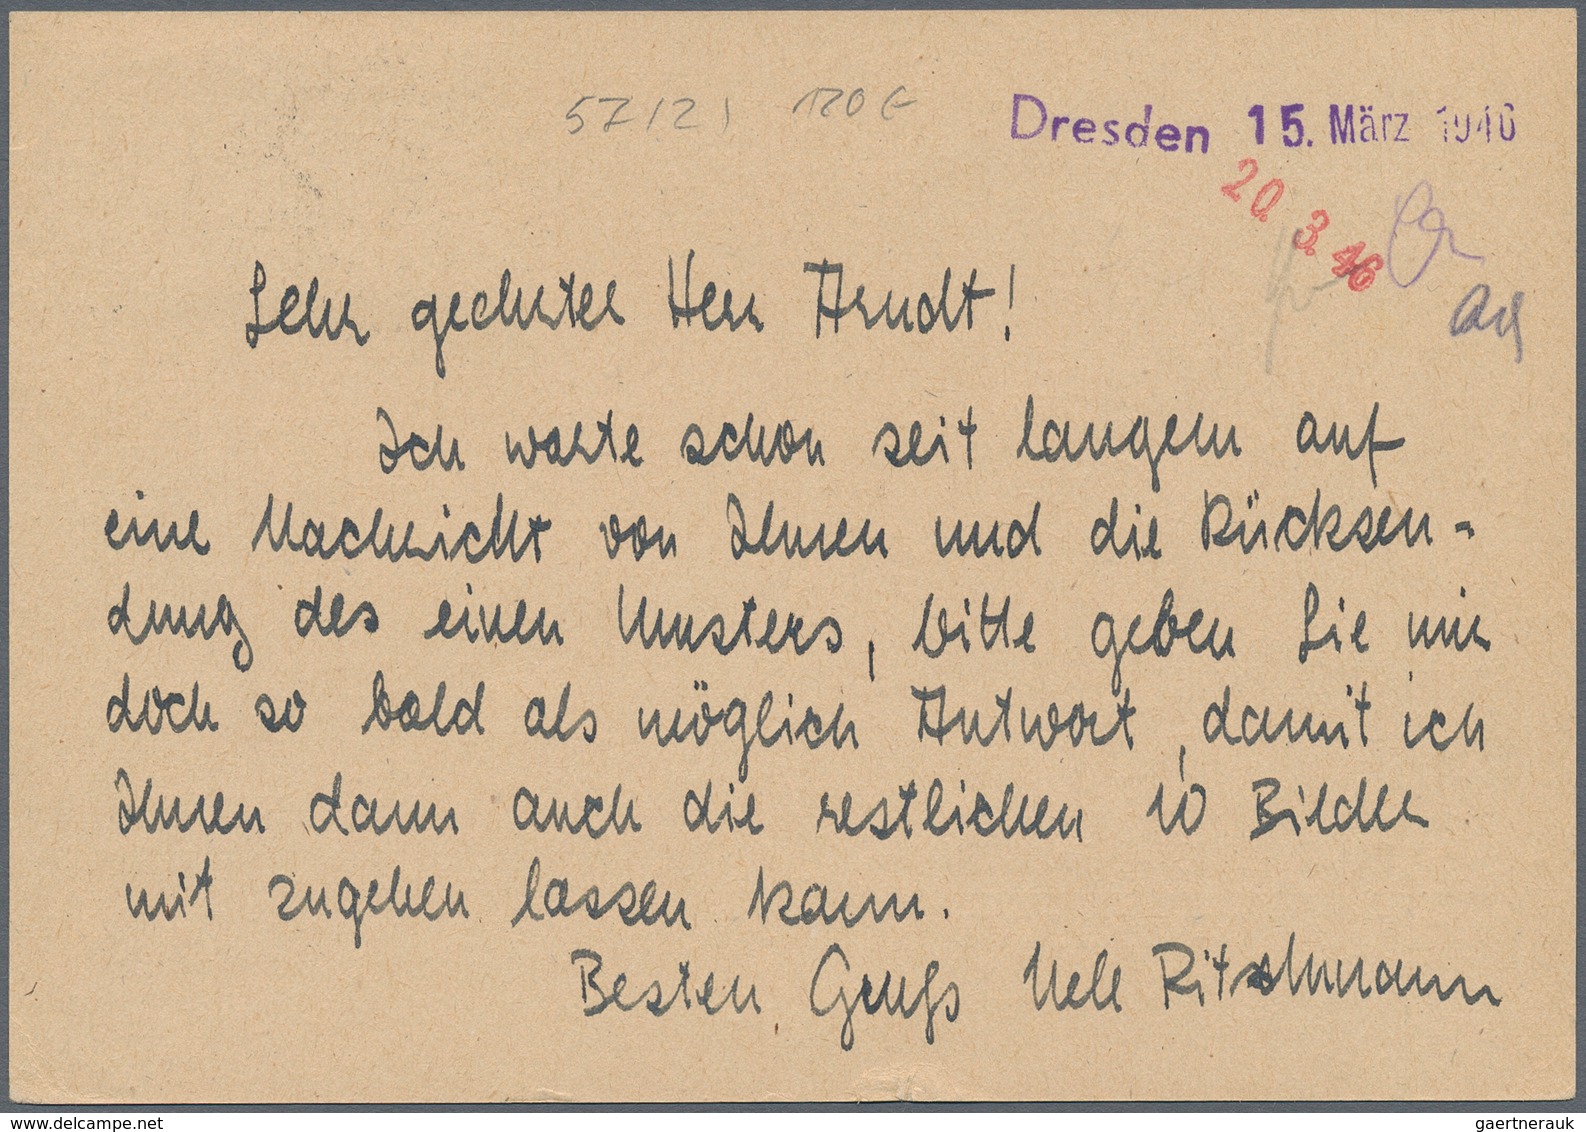 57121 120 €
Dresden 15. März 1946
20. 3. 46
Sehr geehrter Herr Arndt!
Ich warte schon seit langem auf
eine Nachricht von Ihnen und die Rücksen-
dung des einen Musters, bitte geben Sie mir
doch so bald als möglich Antwort, damit ich
Ihnen dann auch die restlichen 10 Bilder
mit zugehen lassen kann.
Besten Gruß Nele Ritschmann
gaertnerauk @ delcampe.net